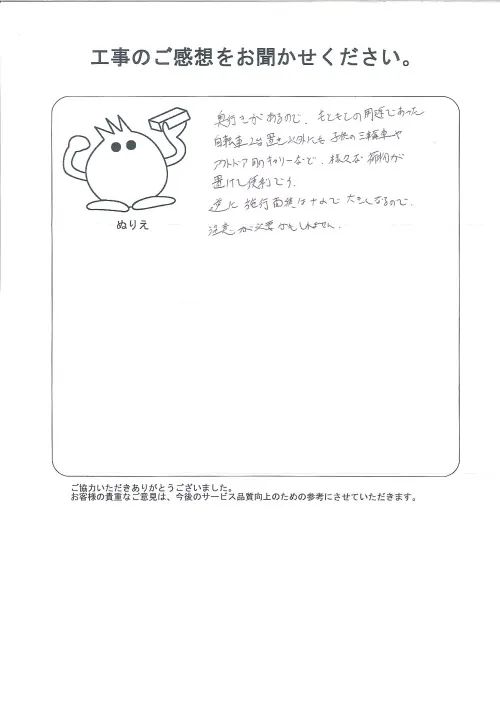 工事のご感想をお聞かせください。
奥行きがあるので、もともとの用途であった
自転車2台置き以外にも子供の三輪車や
アウトドア用のキャリーなど、様々な荷物が
置けて便利です。
逆に施行面積は大きくなるので、
注意が必要かもしれません。
ぬりえ
ご協力いただきありがとうございました。
お客様の貴重なご意見は、今後のサービス品質向上のための参考にさせていただきます。